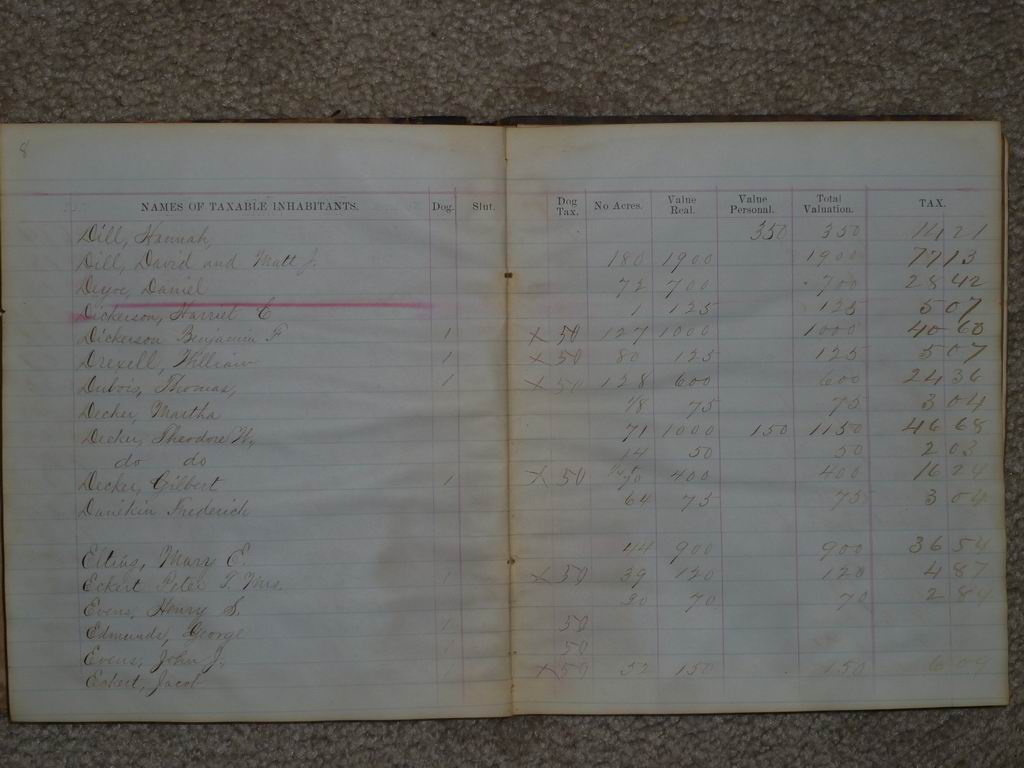 8
NAMES OF TAXABLE INHABITANTS. Dog. Slut. Dog Tax. No Acres. Value Real. Value Personal. Total Valuation. TAX.
Dill, Hannah, 350 350 14 21
Dill, David and Matt J. 180 1900 1900 77 13
Deyoe, Daniel 72 700 700 28 42
Dickerson, Harriet C 1 125 125 5 07
Dickerson Benjamin F 1 X 50 127 1000 1000 40 60
Drexell, William 1 X 50 80 125 125 5 07
Dubois, Thomas, 1 X 50 128 600 600 24 36
Decker, Martha 1/8 75 75 3 04
Decker, Theodore W, 71 1000 150 1150 46 68
do do 14 50 50 2 03
Decker, Gilbert 1 X 50 400 400 16 24
Danekin Frederich 64 75 75 3 04
Elting, Mary E. 44 900 900 36 54
Eckert Peter T. Mrs. 1 X 50 39 120 120 4 87
Evens, Henry S. 30 70 70 2 84
Edmunds, George 1 50
Evens, John J. 1 50
Eckert, Jacob 1 X 50 52 150 150 6 09